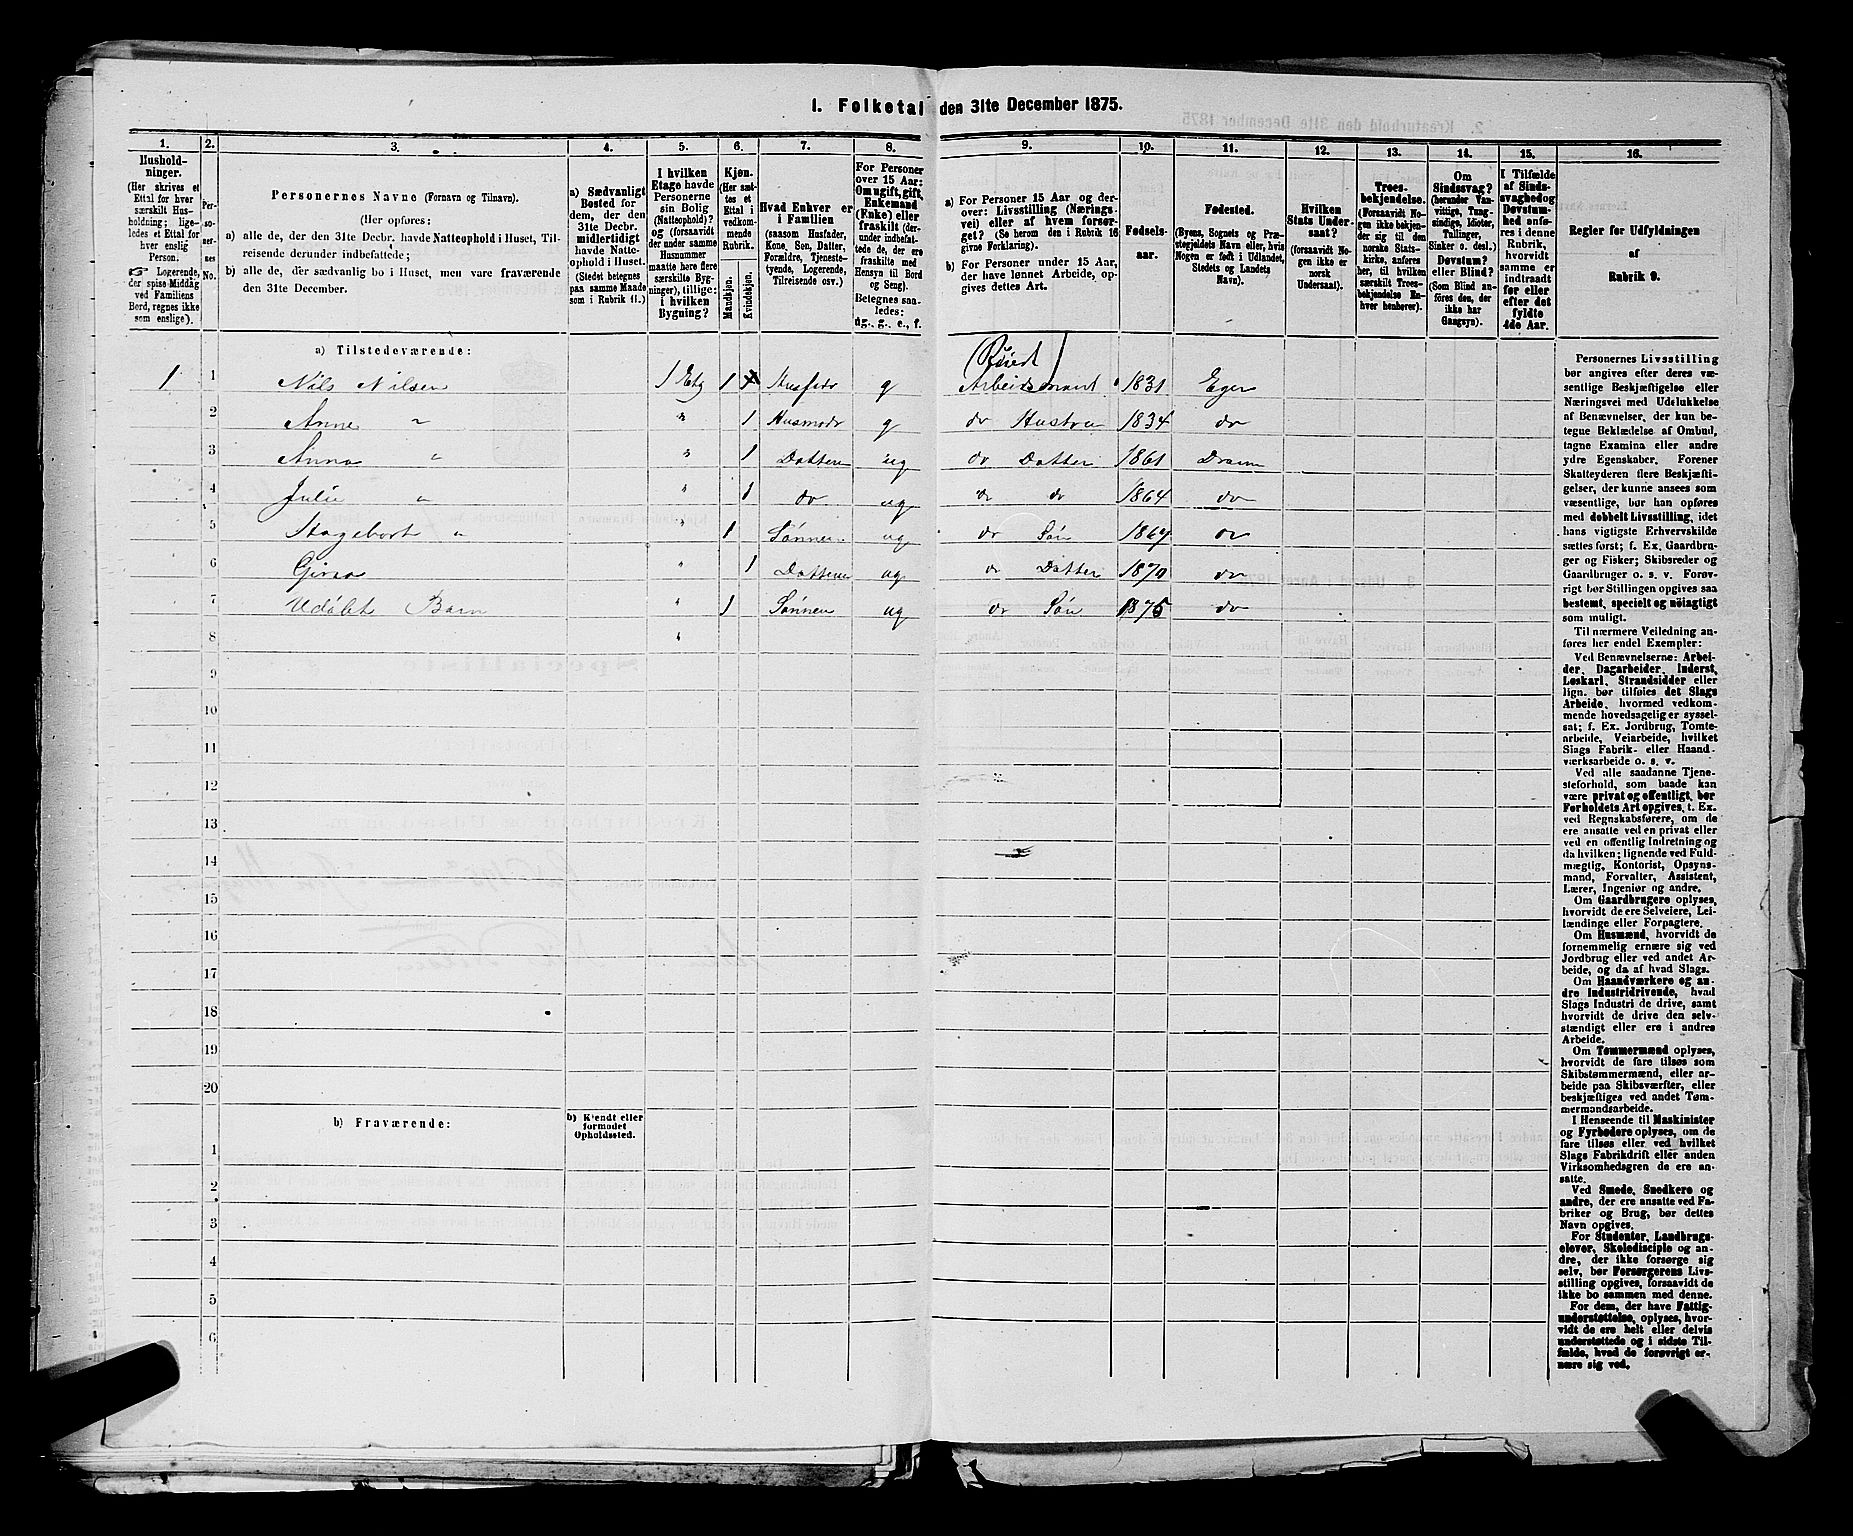 1. Folketal den 31te December 1875.
1. 2. 3. 4. 5. 6. 7. 8. 9. 10. 11. 12. 13. 14. 15. 16.
Husholdninger.
(Her skrives et
Ettal for hver
særskilt Husholdning;
ligeledes
et Ettal for
hver enslig
Person.
☞ Logerende,
der spise Middag
ved Familiens
Bord, regnes ikke
som enslige).
Personernes
No.
Personernes Navne (Fornavn og Tilnavn).
(Her opføres:
a) alle de, der den 31te Decbr. havde Natteophold i Huset, Tilreisende
derunder indbefattede;
b) alle de, der sædvanlig bo i Huset, men vare fraværende
den 31te December.
a) Sædvanligt
Bosted for
dem, der den
31te Decbr.
midlertidigt
havde Natteophold
i Huset.
(Stedet betegnes
paa samme Maade
som i Rubrik 11.)
I hvilken
Etage havde
Personerne
sin Bolig
(Natteophold)?
og (forsaavidt
der under samme
Husnummer
maatte høre flere
særskilte Bygninger),
tillige:
i hvilken
Bygning?
Kjøn.
(Her sættes
et
Ettal i
vedkommende
Rubrik.
Mandkjøn.
Kvindekjøn.
Hvad Enhver er
i Familien
(saasom Husfader,
Kone, Søn, Datter,
Forældre, Tjenestetyende,
Logerende,
Tilreisende osv.)
For Personer
over 15 Aar:
Om ugift, gift,
Enkemand
(Enke) eller
fraskilt (derunder
indbefattede
de, der ere
fraskilte med
Hensyn til Bord
og Seng).
Betegnes saaledes:
ug., g., e., f.
a) For Personer 15 Aar og derover:
Livsstilling (Næringsvei)
eller af hvem forsørget?
(Se herom den i Rubrik 16
givne Forklaring).
b) For Personer under 15 Aar,
der have lønnet Arbeide, opgives
dettes Art.
Fødselsaar.
Fødested.
(Byens, Sognets og Præstegjeldets
Navn eller, hvis
Nogen er født i Udlandet,
Stedets og Landets
Navn).
Hvilken
Stats Undersaat?
(forsaavidt Nogen
ikke er
norsk
Undersaat).
Troesbekjendelse.
(Forsaavidt Nogen
ikke bekjender
sig til den
norske Statskirke,
anføres
her, til hvilken
særskilt Troesbekjendelse
Enhver
henhører).
Om
Sindssvag?
(herunder Vanvittige,
Tungsindige,
Idioter,
Tullinger,
Sinker o. desl.)
Døvstum?
eller Blind?
(Som Blind anføres
den, der
ikke har
Gangsyn).
I Tilfælde
af Sindssvaghed
og
Døvstumhed
anføres
i denne
Rubrik,
hvorvidt
samme er
indtraadt
før eller
efter det
fyldte
4de Aar.
Regler for Udfyldningen
af
Rubrik 9.
a) Tilstedeværende:
1 1 Nils Nilsen 1 Etg 1 Husfadr g Arbeidsmand 1831 Eger
2 Anne " " 1 Husmodr g do Hustru 1834 do
3 Anna " " 1 Datter ug do Datter 1861 Dram
4 Julie " " 1 do ug do do 1864 do
5 " " 1 Sønnen ug do Søn 1867 do
6 " 1 Datteren ug do Datter 1870 do
7 Udøbt Barn " 1 Sønnen ug do Søn 1875 do
8 "
9
10
11
12
13
14
15
16
17
18
19
20
b) Fraværende:
b) Kjendt eller
formodet
Opholdssted.
1
2
3
4
5
6
Personernes Livsstilling
bør angives efter deres væsentlige
Beskjæftigelse eller
Næringsvei med Udelukkelse
af Benævnelser, der kun betegne
Beklædelse af Ombud,
tagne Examina eller andre
ydre Egenskaber. Forener
Skatteyderen flere Beskjæftigelser,
der kunne ansees som
væsentlige, bør han opføres
med dobbelt Livsstilling, idet
hans vigtigste Erhvervskilde
sættes først; f. Ex. Gaardbruger
og Fisker; Skibsreder og
Gaardbruger o. s. v. Forøvrigt
bør Stillingen opgives saa
bestemt, specielt og nöiagtigt
som muligt.
Til nærmere Veiledning anføres
her endel Exempler:
Ved Benævnelserne: Arbeider,
Dagarbeider, Inderst,
Løskarl, Strandsidder eller
lign. bør tilføies det Slags
Arbeide, hvormed vedkommende
hovedsagelig er sysselsat;
f. Ex. Jordbrug, Tomtearbeide,
Veiarbeide, hvilket
Slags Fabrik- eller Haandværksarbeide
o. s. v.
Ved alle saadanne Tjenesteforhold,
som baade kan
være privat og offentligt, bør
Forholdets Art opgives, t. Ex.
ved Regnskabsførere, om de
ere ansatte ved en privat eller
ved en offentlig Indretning og
da hvilken; lignende ved Fuldmægtig,
Kontorist, Opsynsmand,
Forvalter, Assistent,
Lærer, Ingeniør og andre.
Om Gaardbrugere oplyses,
hvorvidt de ere Selveiere, Leilændinge
eller Forpagtere.
Om Husmænd, hvorvidt de
fornemmelig ernære sig ved
Jordbrug eller ved andet Arbeide,
og da af hvad Slags.
Om Haandværkere og andre
industridrivende, hvad
Slags Industri de drive, samt
hvorvidt de drive den selvstændigt
eller ere i andres
Arbeide.
Om Tømmermænd oplyses,
hvorvidt de fare tilsøs som
Skibstømmermænd, eller arbeide
paa Skibsværfter, eller
beskjæftiges ved andet Tømmermandsarbeide.
I Henseende til Maskinister
og Fyrbødere oplyses, om de
fare tilsøs eller ved hvilket
Slags Fabrikdrift eller anden
Virksomhedsgren de ere ansatte.
Ved Smede, Snedkere og
andre, der ere ansatte ved Fabriker
og Brug, bør dettes
Navn opgives.
For Studenter, Landbrugselever,
Skoledisciple og andre,
der ikke forsørge sig
selv, bør Forsørgerens Livsstilling
opgives, forsaavidt de
ikke bo sammen med denne.
For dem, der have Fattigunderstøttelse,
oplyses, hvorvidt
de ere helt eller delvis
understøttede og i sidste Tilfælde,
hvad de forøvrigt ernære
sig ved.